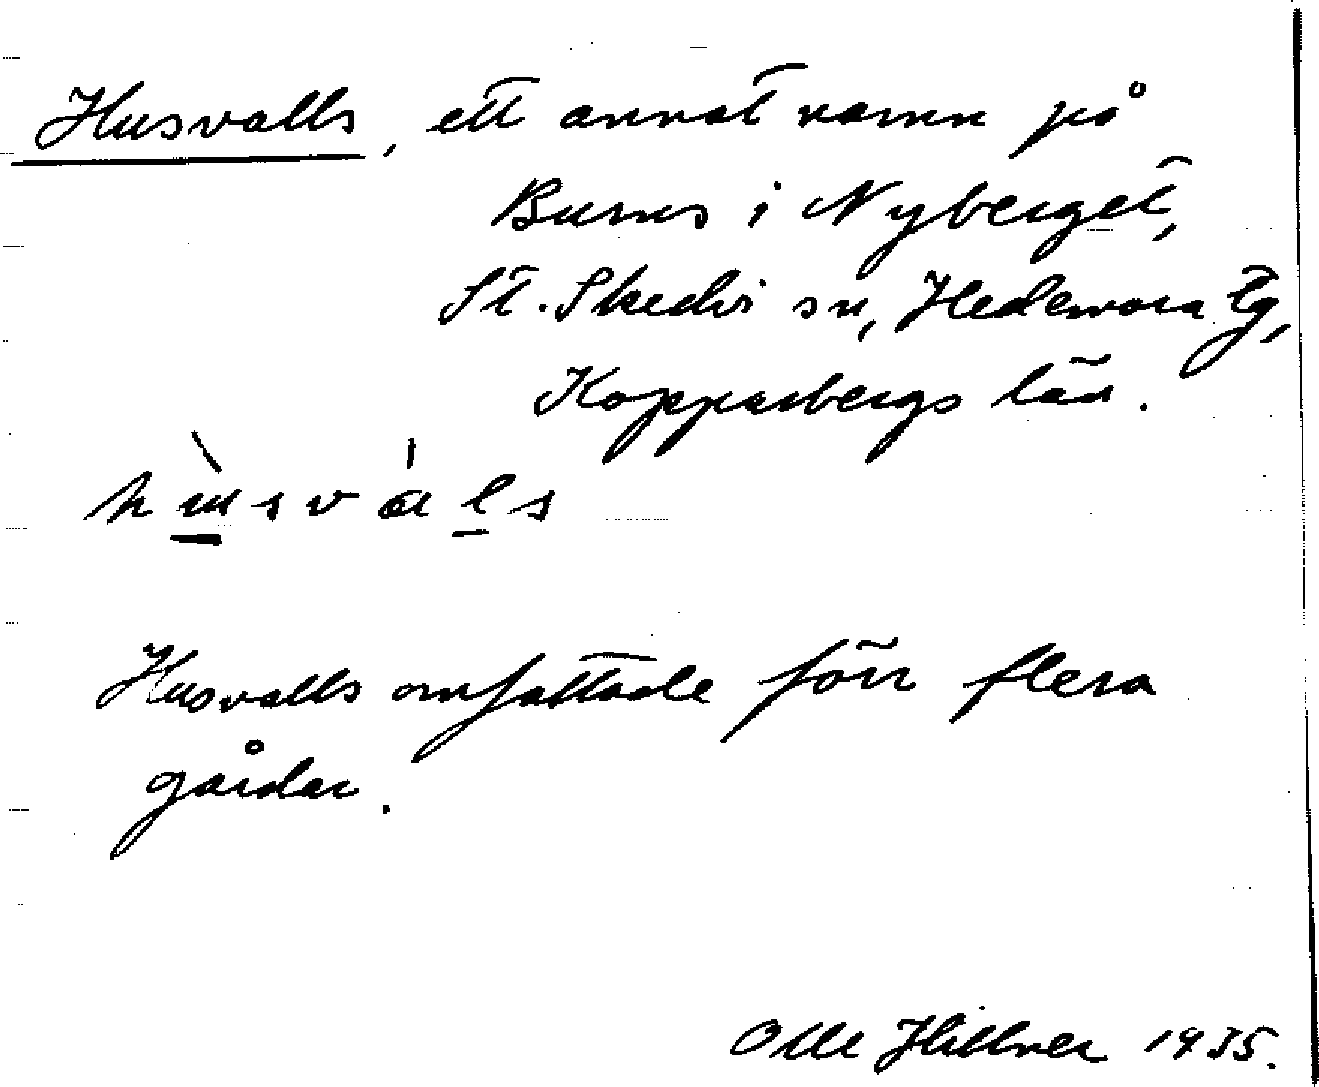 Husvalls, ett annat namn på
Burns i Nyberget,
St. Skedvi sn, Hedemora tg,
Kopparbergs län.
Husvalls omfattade förr flera
gårdar.
Olle Hillner 1935.